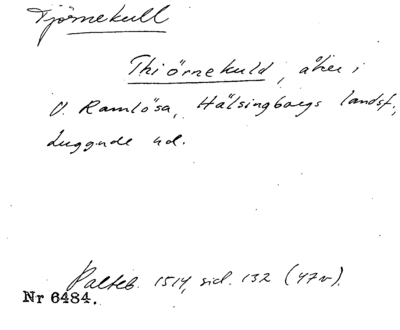 Tjörnekull
Thiörnekuld, åker i
V. Ramlösa, Hälsingborgs landsf.,
Luggude hd.
Palteb. 1514, sid. 132 (47v).
Nr 6484.